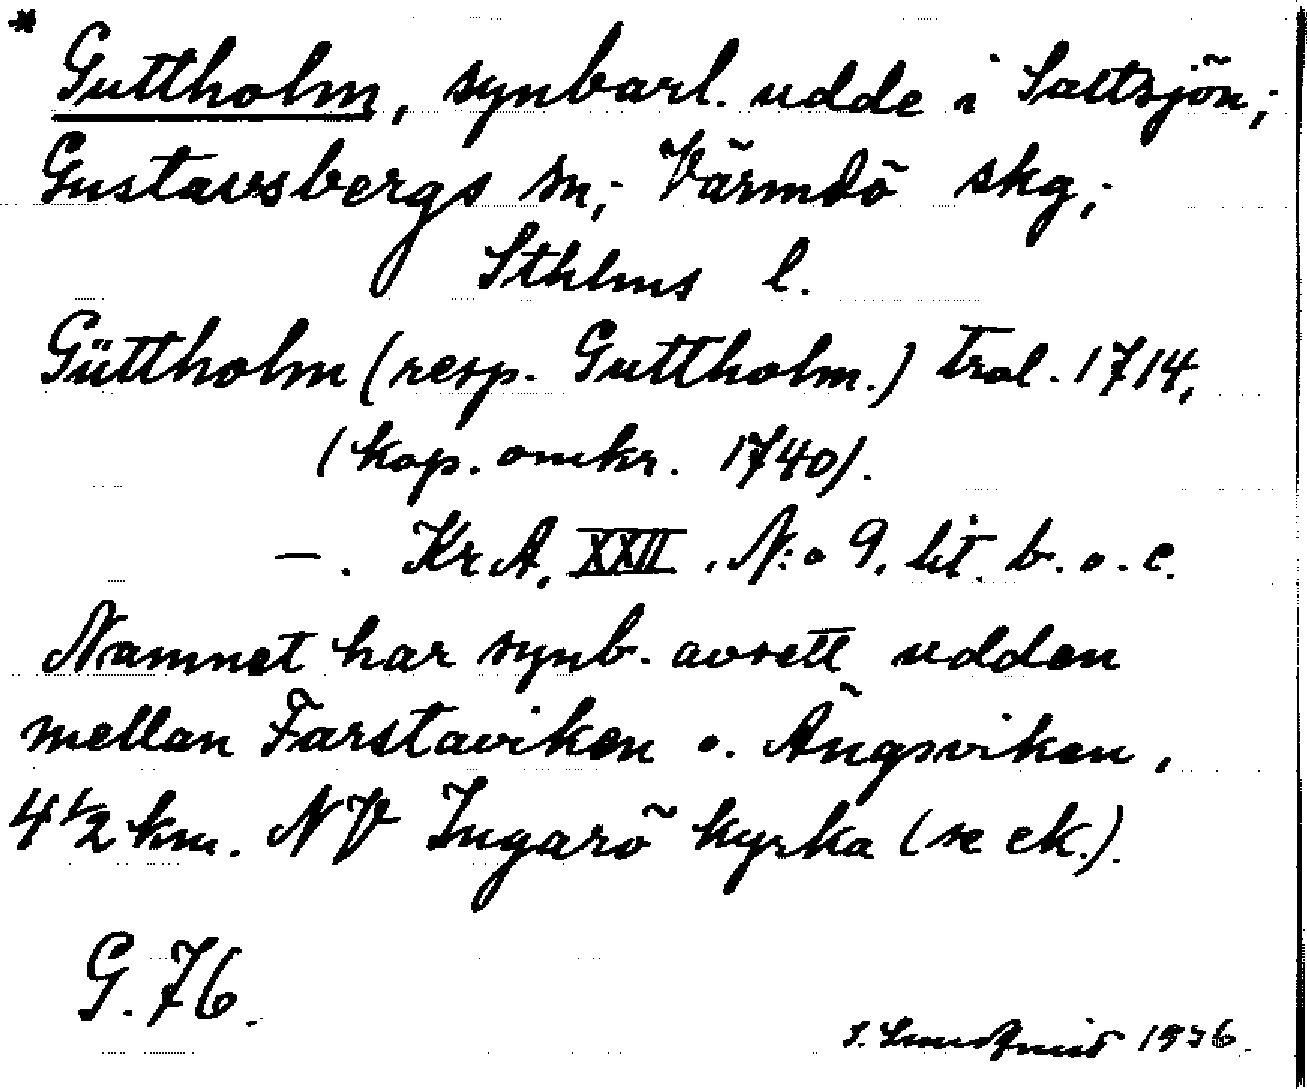 * Guttholm, synbarl. udde i Saltsjön;
Gustavsbergs sn; Värmdö skg;
Sthlms l.
Güttholm (resp. Guttholm.) tral. 1714,
(kop. omkr. 1740).
—. KrA. XXII. N:o 9. lit. b. o. c.
Namnet har synb. avsett udden
mellan Farstaviken o. Ängsviken,
4 1/2 km. NV Ingarö kyrka (se ek.).
G. 76.
1936.